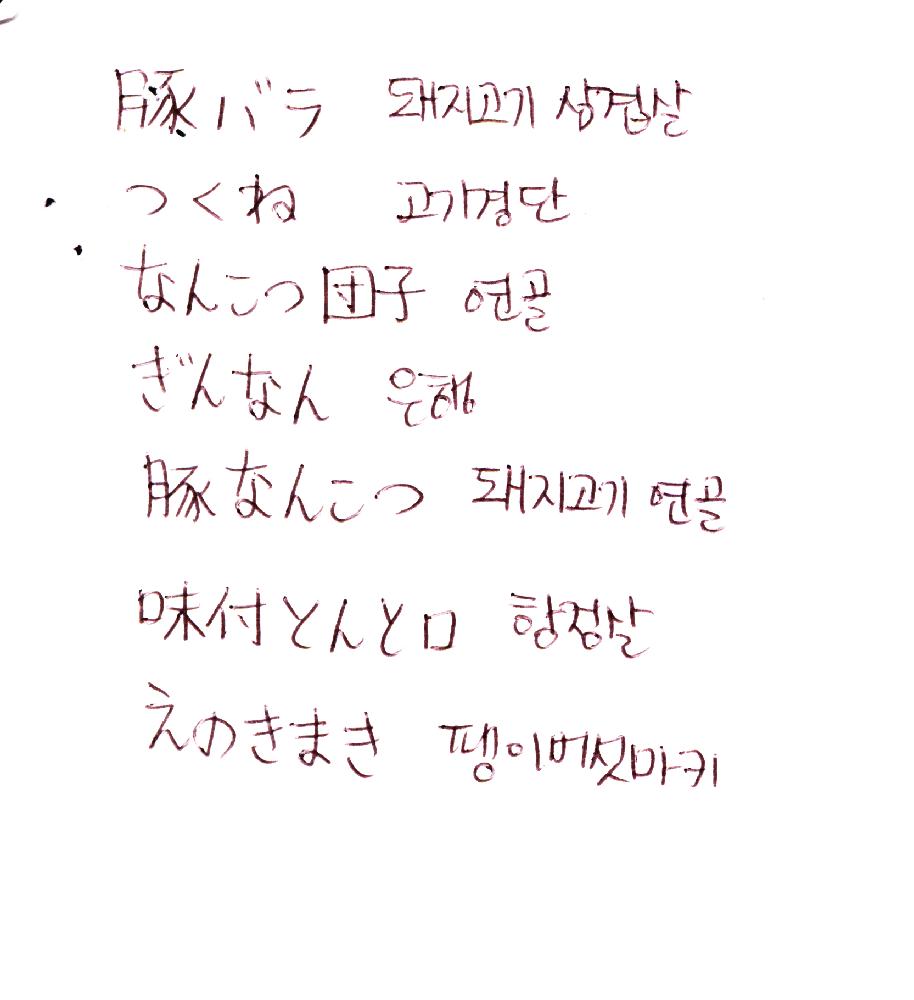 豚バラ 돼지고기 삼겹살
つくね 고기경단
なんこつ団子 연골
ぎんなん 은행
豚なんこつ 돼지고기 연골
味付とんとロ 항정살
えのきまき 팽이버섯마키